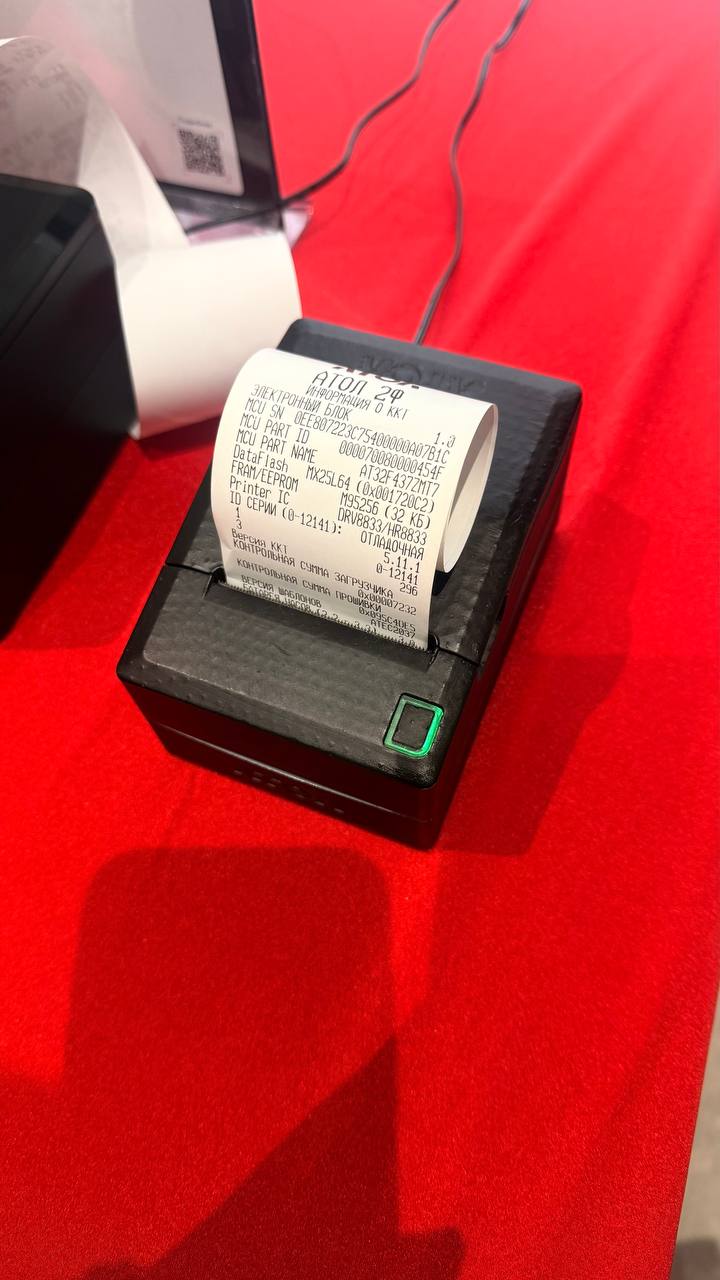 АТОЛ 2Ф
ИНФОРМАЦИЯ О ККТ
ЭЛЕКТРОННЫЙ БЛОК 1.0
MCU SN 0EE807223C75400000A07B1C
MCU PART ID 000070080000454F
MCU PART NAME AT32F437ZMT7
DataFlash MX25L64 (0x001720C2)
FRAM/EEPROM M95256 (32 КБ)
Printer IC DRV8833/HR8833
ID СЕРИИ (0-12141): ОТЛАДОЧНАЯ
1 5.11.1
3 0-12141
Версия ККТ 296
КОНТРОЛЬНАЯ СУММА ЗАГРУЗЧИКА
0x00007232
КОНТРОЛЬНАЯ СУММА ПРОШИВКИ
0x095C4DE5
ВЕРСИЯ ШАБЛОНОВ ATEC2037